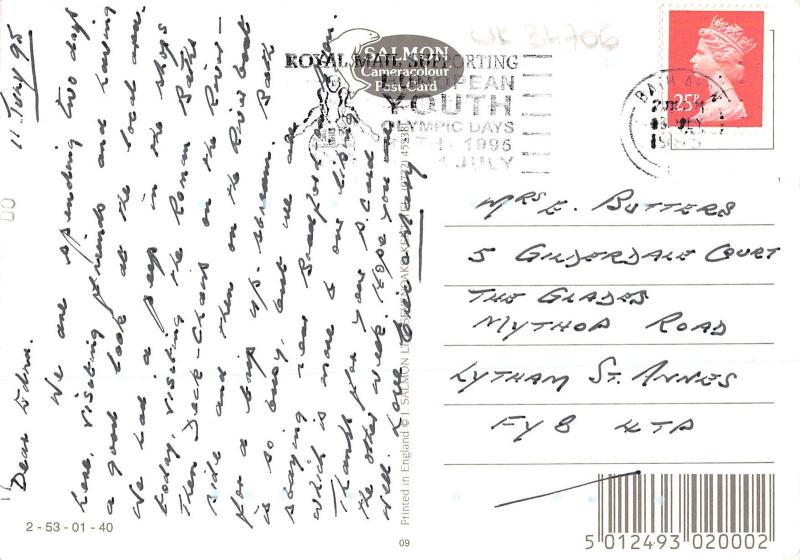 11 July 95
Dear Edna.
We are spending two days
here, visiting friends and having
a good look at the local area.
We had a peep in the shops
today, visiting the Roman Baths
Then Deck-Chairs on the River-
side and then on the River boat
for a trip up-stream. Bath
is so busy, but we are
staying near Bradford
which is more to our liking
Thanks for your card
the other week. Hope you are
well. Love
Printed in England © J. SALMON LTD., SEVENOAKS, KENT. TEL (0732) 452381
SALMON
Cameracolour
Post Card
UK 34706
ROYAL MAIL SUPPORTING
EUROPEAN
YOUTH
OLYMPIC DAYS
1995
JULY
BATH
JLY
25P
MRS E. BUTTERS
5 GILDERDALE COURT
THE GLADES
MYTHOP ROAD
LYTHAM ST. ANNES
FY8 4TP
2 - 53 - 01 - 40
09
5 012493 020002